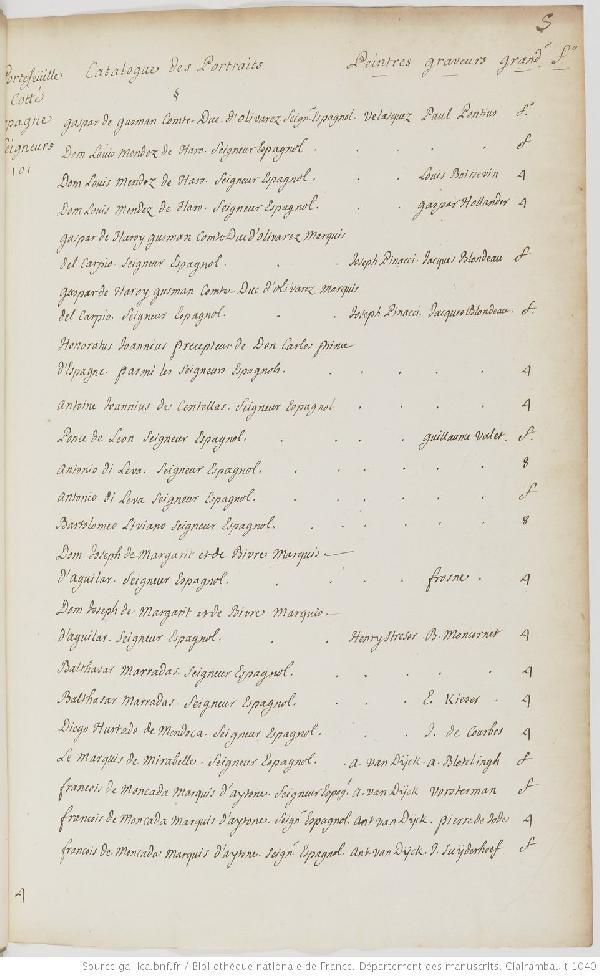 S
Portefeüille Catalogue des Portraits Peintres graveurs grand.r f.o
Cotté
Espagne
Seigneurs
101
gaspar de gusman Comte Duc d'olivarez Seign.r Espagnol. Velasquez Paul Pontius f.o
Dom Louis Mendez de Haro. Seigneur Espagnol . . . . f
Dom Louis Mendez de Haro. Seigneur Espagnol . . . Louis Boissevin 4
Dom Louis Mendez de Haro. Seigneur Espagnol . . . gaspar Hollander 4
gaspar de Haroy gusman Comte Duc d'olivarez Marquis
del Carpio. Seigneur Espagnol . . Joseph Pinacci. Jacques Blondeau f.
gaspar de Haroy gusman Comte Duc d'olivarez Marquis
del Carpio. Seigneur Espagnol . . Joseph Pinacci. Jacques Blondeau. f.
Honoratus Joannius precepteur de Don Carlos prince
d'Espagne. parmi les Seigneurs Espagnols . . . . . 4
Antoine Joannius de Centellas. Seigneur Espagnol . . . . 4
Ponce de Leon Seigneur Espagnol . . . guillaume Valet. f.
Antonio di Leva. Seigneur Espagnol . . . . . 8
Antonio di Leva Seigneur Espagnol . . . . . f
Bartolomeo Liviano Seigneur Espagnol . . . . . 8
Dom Joseph de Margarit et de Bivre Marquis
d'aguilar. Seigneur Espagnol . . . . frosne . 4
Dom Joseph de Margarit et de Bivre Marquis
d'aguilar. Seigneur Espagnol . . Henry Streser B. Moncornet 4
Balthasar Marradas. Seigneur Espagnol . . . . . 4
Balthasar Marradas. Seigneur Espagnol . . . E. Kieser . 4
Diego Hurtado de Mendoca. Seigneur Espagnol . . . J. de Courbes 4
Le Marquis de Mirabelle. Seigneur Espagnol . A. van Dÿck. A. Blotelingh f
francois de Moncada Marquis D'aytone. Seigneur Espag.l A. van Dÿck Vorsterman f
francois de Moncada Marquis D'aytone. Seign.r Espagnol. Ant van Dÿck. pierre de Jode 4
francois de Moncada Marquis D'aytone. Seign.r Espagnol. Ant van Dÿck. J. Suÿderhoef f
4
Source gallica.bnf.fr / Bibliothèque nationale de France. Département des manuscrits. Clairambault 1040